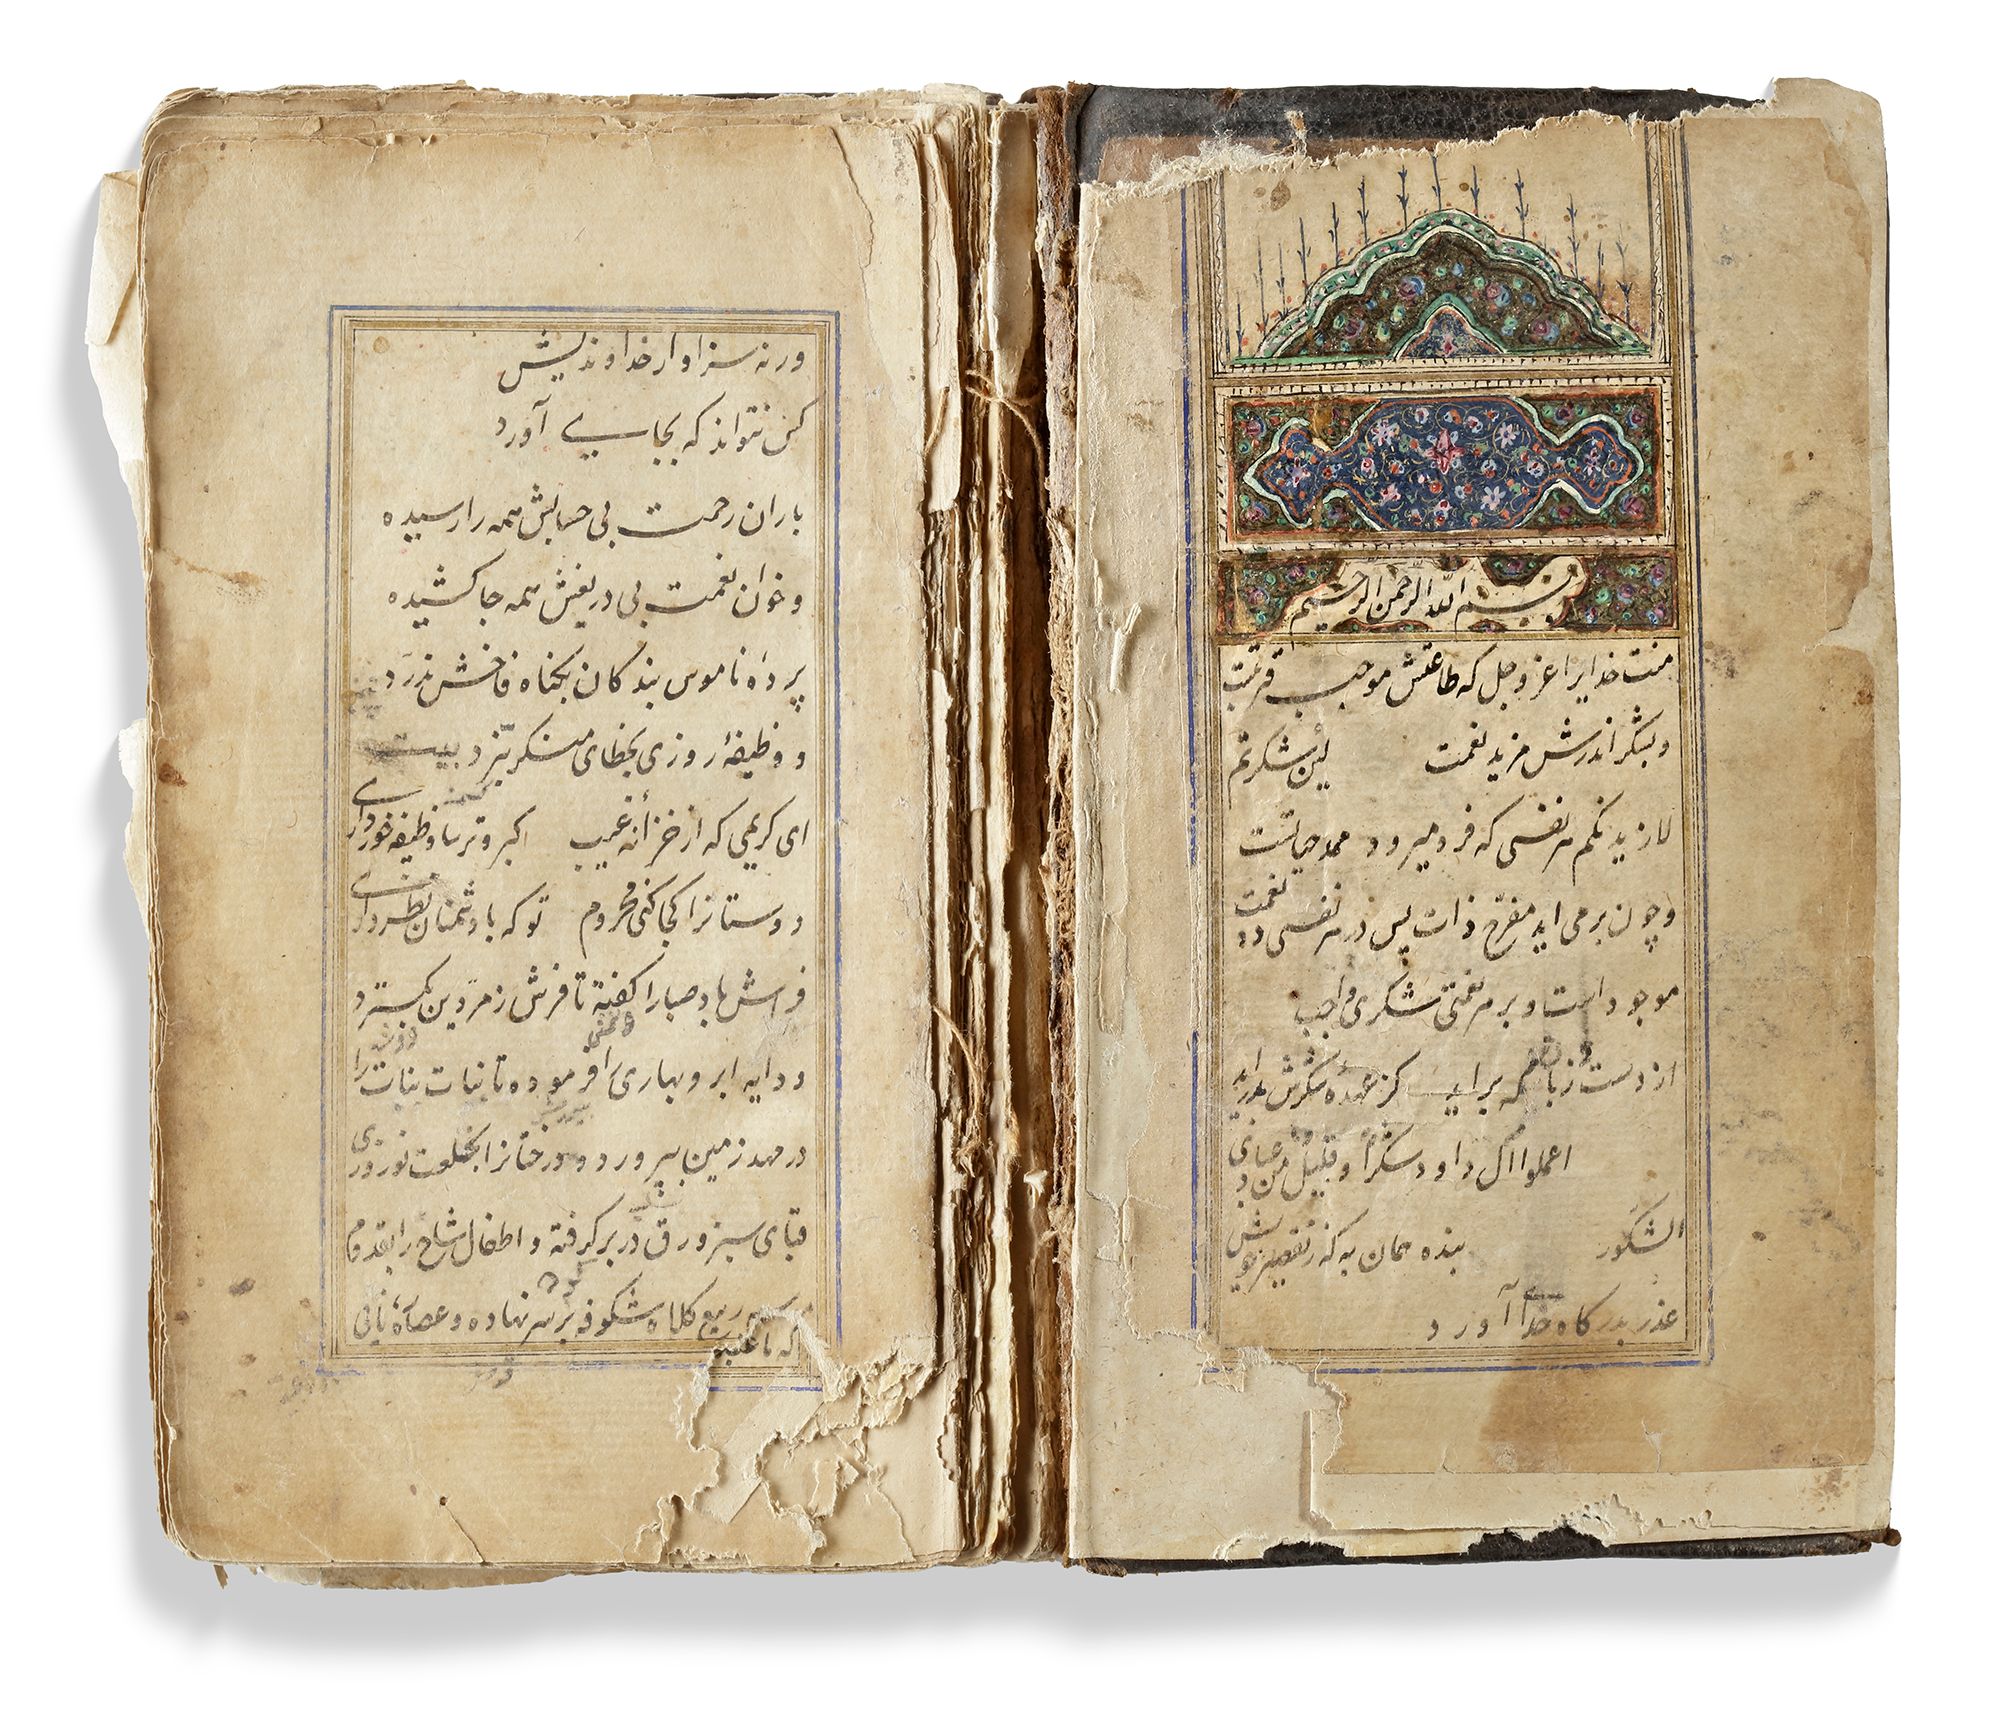 بسم الله الرحمن الرحیم
منت خدایرا عز و جل که طاعتش موجب قربتست
و بشکر اندرش مزید نعمت لئن شکرتم
لازیدنکم هر نفسی که فرو میرود ممد حیاتست
و چون برمی اید مفرح ذات پس در هر نفسی دو نعمت
موجود است و بر هر نعمتی شکری واجب
از دست و زبان که براید کز عهده شکرش بدر اید
اعملوا ال داود شکرا و قلیل من عبادی
الشکور بنده همان به که ز تقصیر خویش
عذر بدرگاه خدا آورد
ورنه سزاوار خداوندیش
کس نتواند که بجای آورد
باران رحمت بی حسابش همه را رسیده
و خوان نعمت بی دریغش همه جا کشیده
پردهٔ ناموس بندگان بگناه فاحش ندرد
و وظیفهٔ روزی بخطای منکر نبرد بیت
ای کریمی که از خزانهٔ غیب کبر و ترسا وظیفه خور داری
دوستانرا کجا کنی محروم تو که با دشمنان نظر داری
فراش باد صبا را گفته تا فرش زمردین بگسترد
و دایه ابر و بهاری را فرموده تا بنات نبات را
در مهد زمین بپرورد و درختانرا بخلعت نوروزی
قبای سبز ورق در بر گرفته و اطفال شاخ را بقدوم
ربیع کلاه شکوفه بر سر نهاده و عصارهٔ نایی